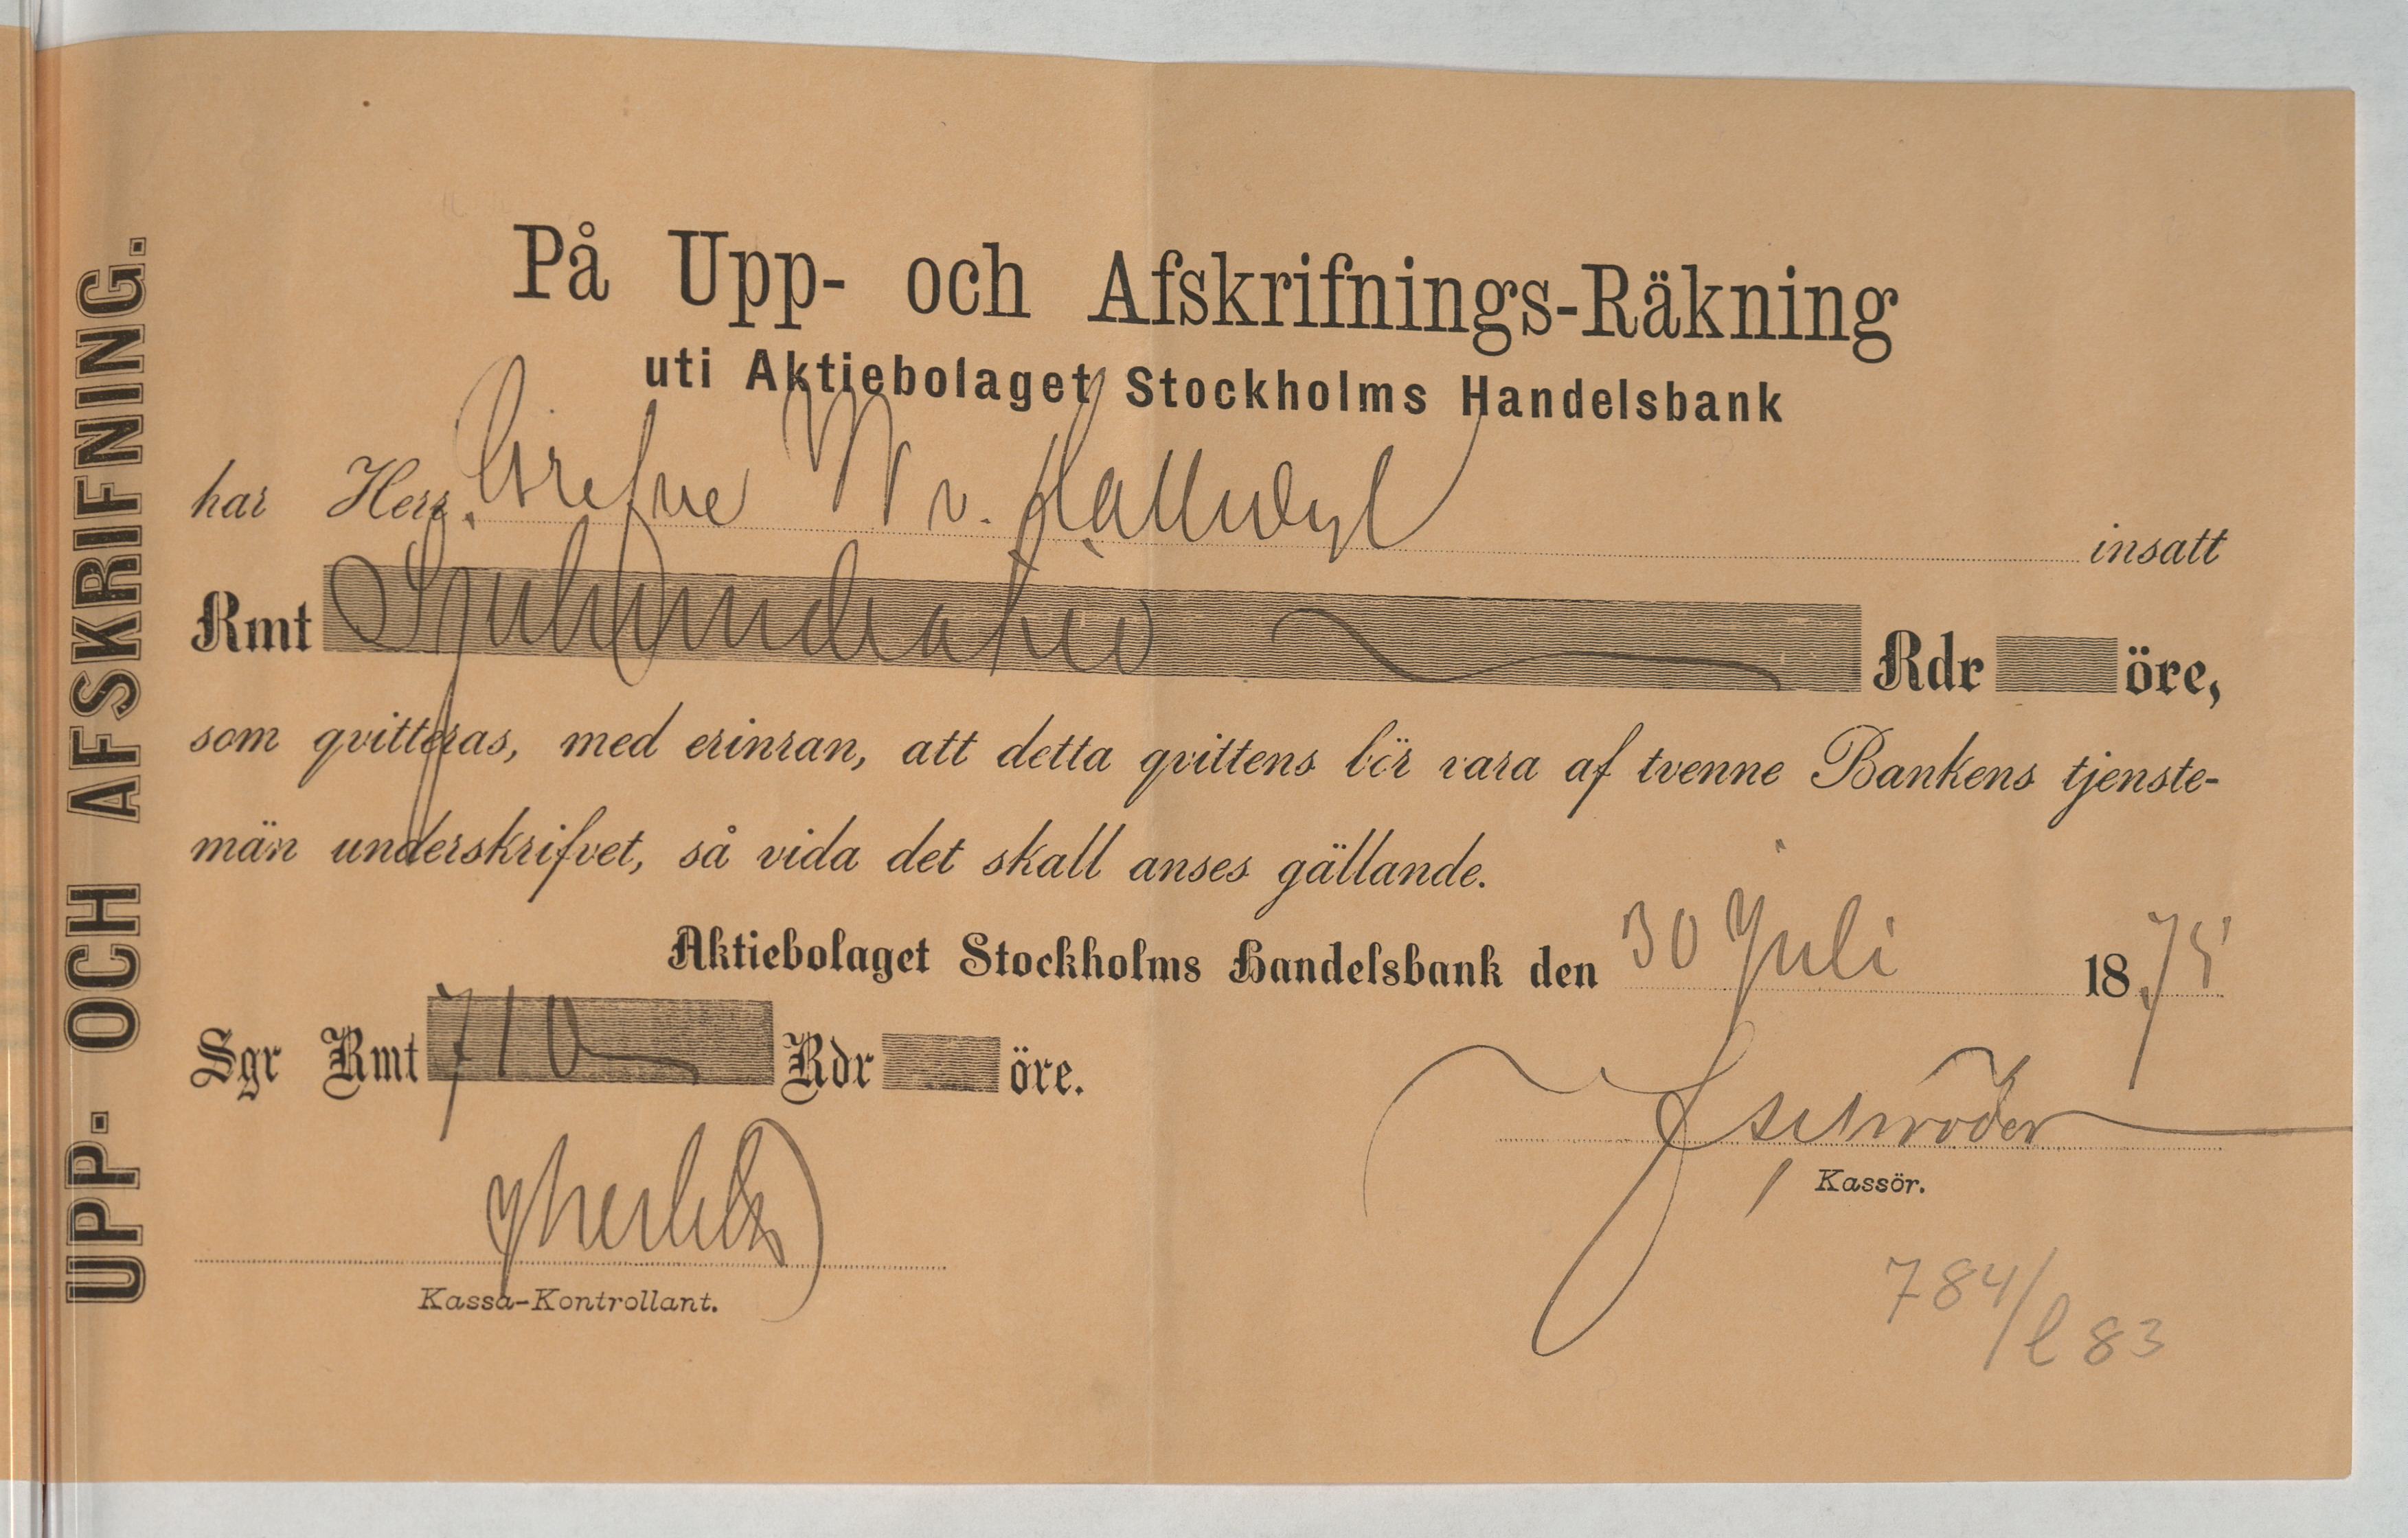 UPP- OCH AFSKRIFNING.
På Upp- och Afskrifnings-Räkning
uti Aktiebolaget Stockholms Handelsbank
har Herr Grefve W v. Hallwyl insatt
Rmt Sjuhundratio Rdr öre,
som qvitteras, med erinran, att detta qvittens bör vara af tvenne Bankens tjenste-
män underskrifvet, så vida det skall anses gällande.
Aktiebolaget Stockholms Handelsbank den 30 Juli 1875
Sgr Rmt 710 Rdr öre.
Schröder
Kassör.
Kassa-Kontrollant.
784/l 83